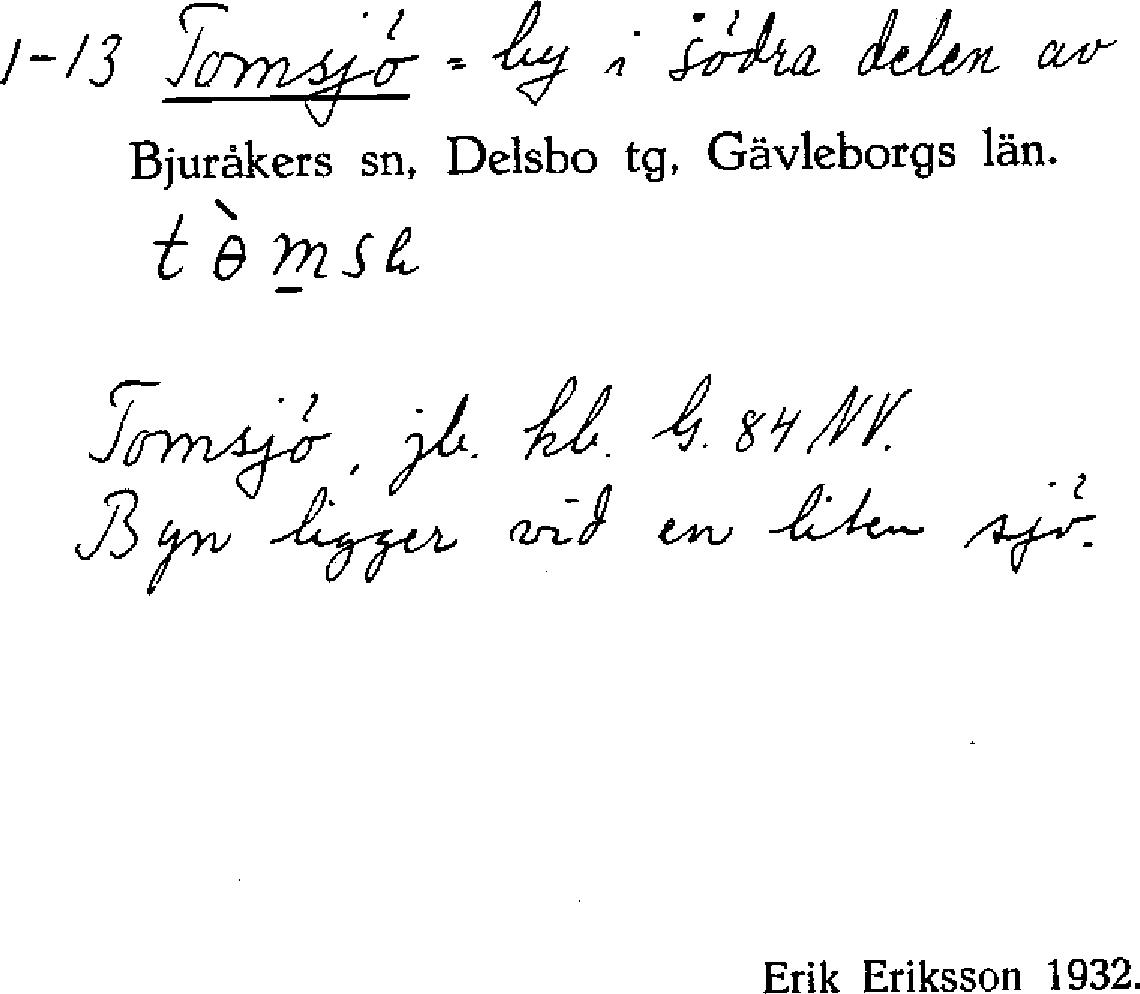 1-13 Tomsjö = by i södra delen av
Bjuråkers sn, Delsbo tg, Gävleborgs län.
Tomsjö, jb. kb. G. 84 NV.
Byn ligger vid en liten sjö.
Erik Eriksson 1932.